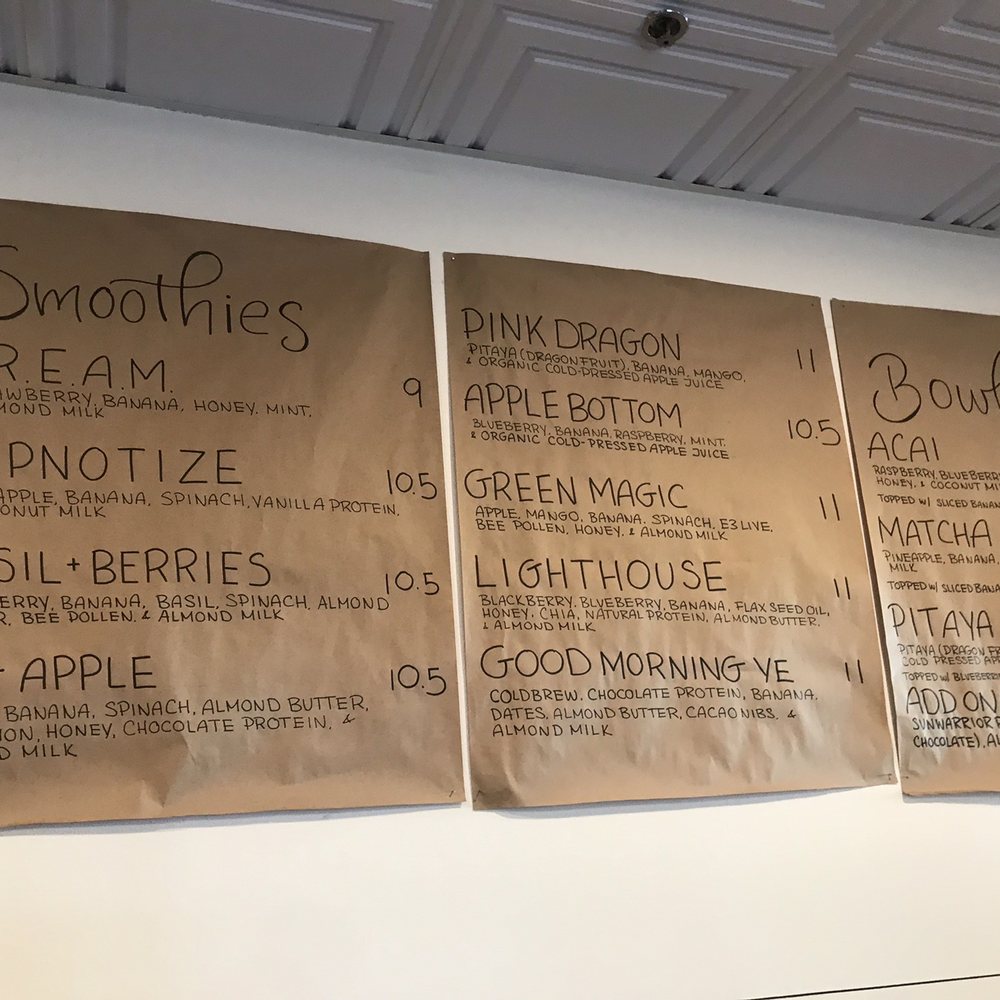 Smoothies
R.E.A.M. 9
BANANA, HONEY, MINT,
MILK
10.5
APPLE, BANANA, SPINACH, VANILLA PROTEIN,
MILK
+ BERRIES 10.5
BANANA, BASIL, SPINACH, ALMOND
BEE POLLEN, & ALMOND MILK
APPLE 10.5
BANANA, SPINACH, ALMOND BUTTER,
HONEY, CHOCOLATE PROTEIN, &
MILK
PINK DRAGON 11
PITAYA (DRAGONFRUIT), BANANA, MANGO,
& ORGANIC COLD-PRESSED APPLE JUICE
APPLE BOTTOM 10.5
BLUEBERRY, BANANA, RASPBERRY, MINT
& ORGANIC COLD-PRESSED APPLE JUICE
GREEN MAGIC 11
APPLE, MANGO, BANANA, SPINACH, E3 LIVE,
BEE POLLEN, HONEY, & ALMOND MILK
LIGHTHOUSE 11
BLACKBERRY, BLUEBERRY, BANANA, FLAX SEED OIL,
HONEY, CHIA, NATURAL PROTEIN, ALMOND BUTTER,
& ALMOND MILK
GOOD MORNING YE 11
COLDBREW, CHOCOLATE PROTEIN, BANANA,
DATES, ALMOND BUTTER, CACAO NIBS, &
ALMOND MILK
ACAI
RASPBERRY, BLUEBERRY
HONEY, & COCONUT
TOPPED W/ SLICED
MATCHA
PINEAPPLE, BANANA,
MILK
TOPPED W/ SLICED
PITAYA
PITAYA (DRAGON
COLD PRESSED
TOPPED W/
ADD ON
SUNWARRIOR
CHOCOLATE),